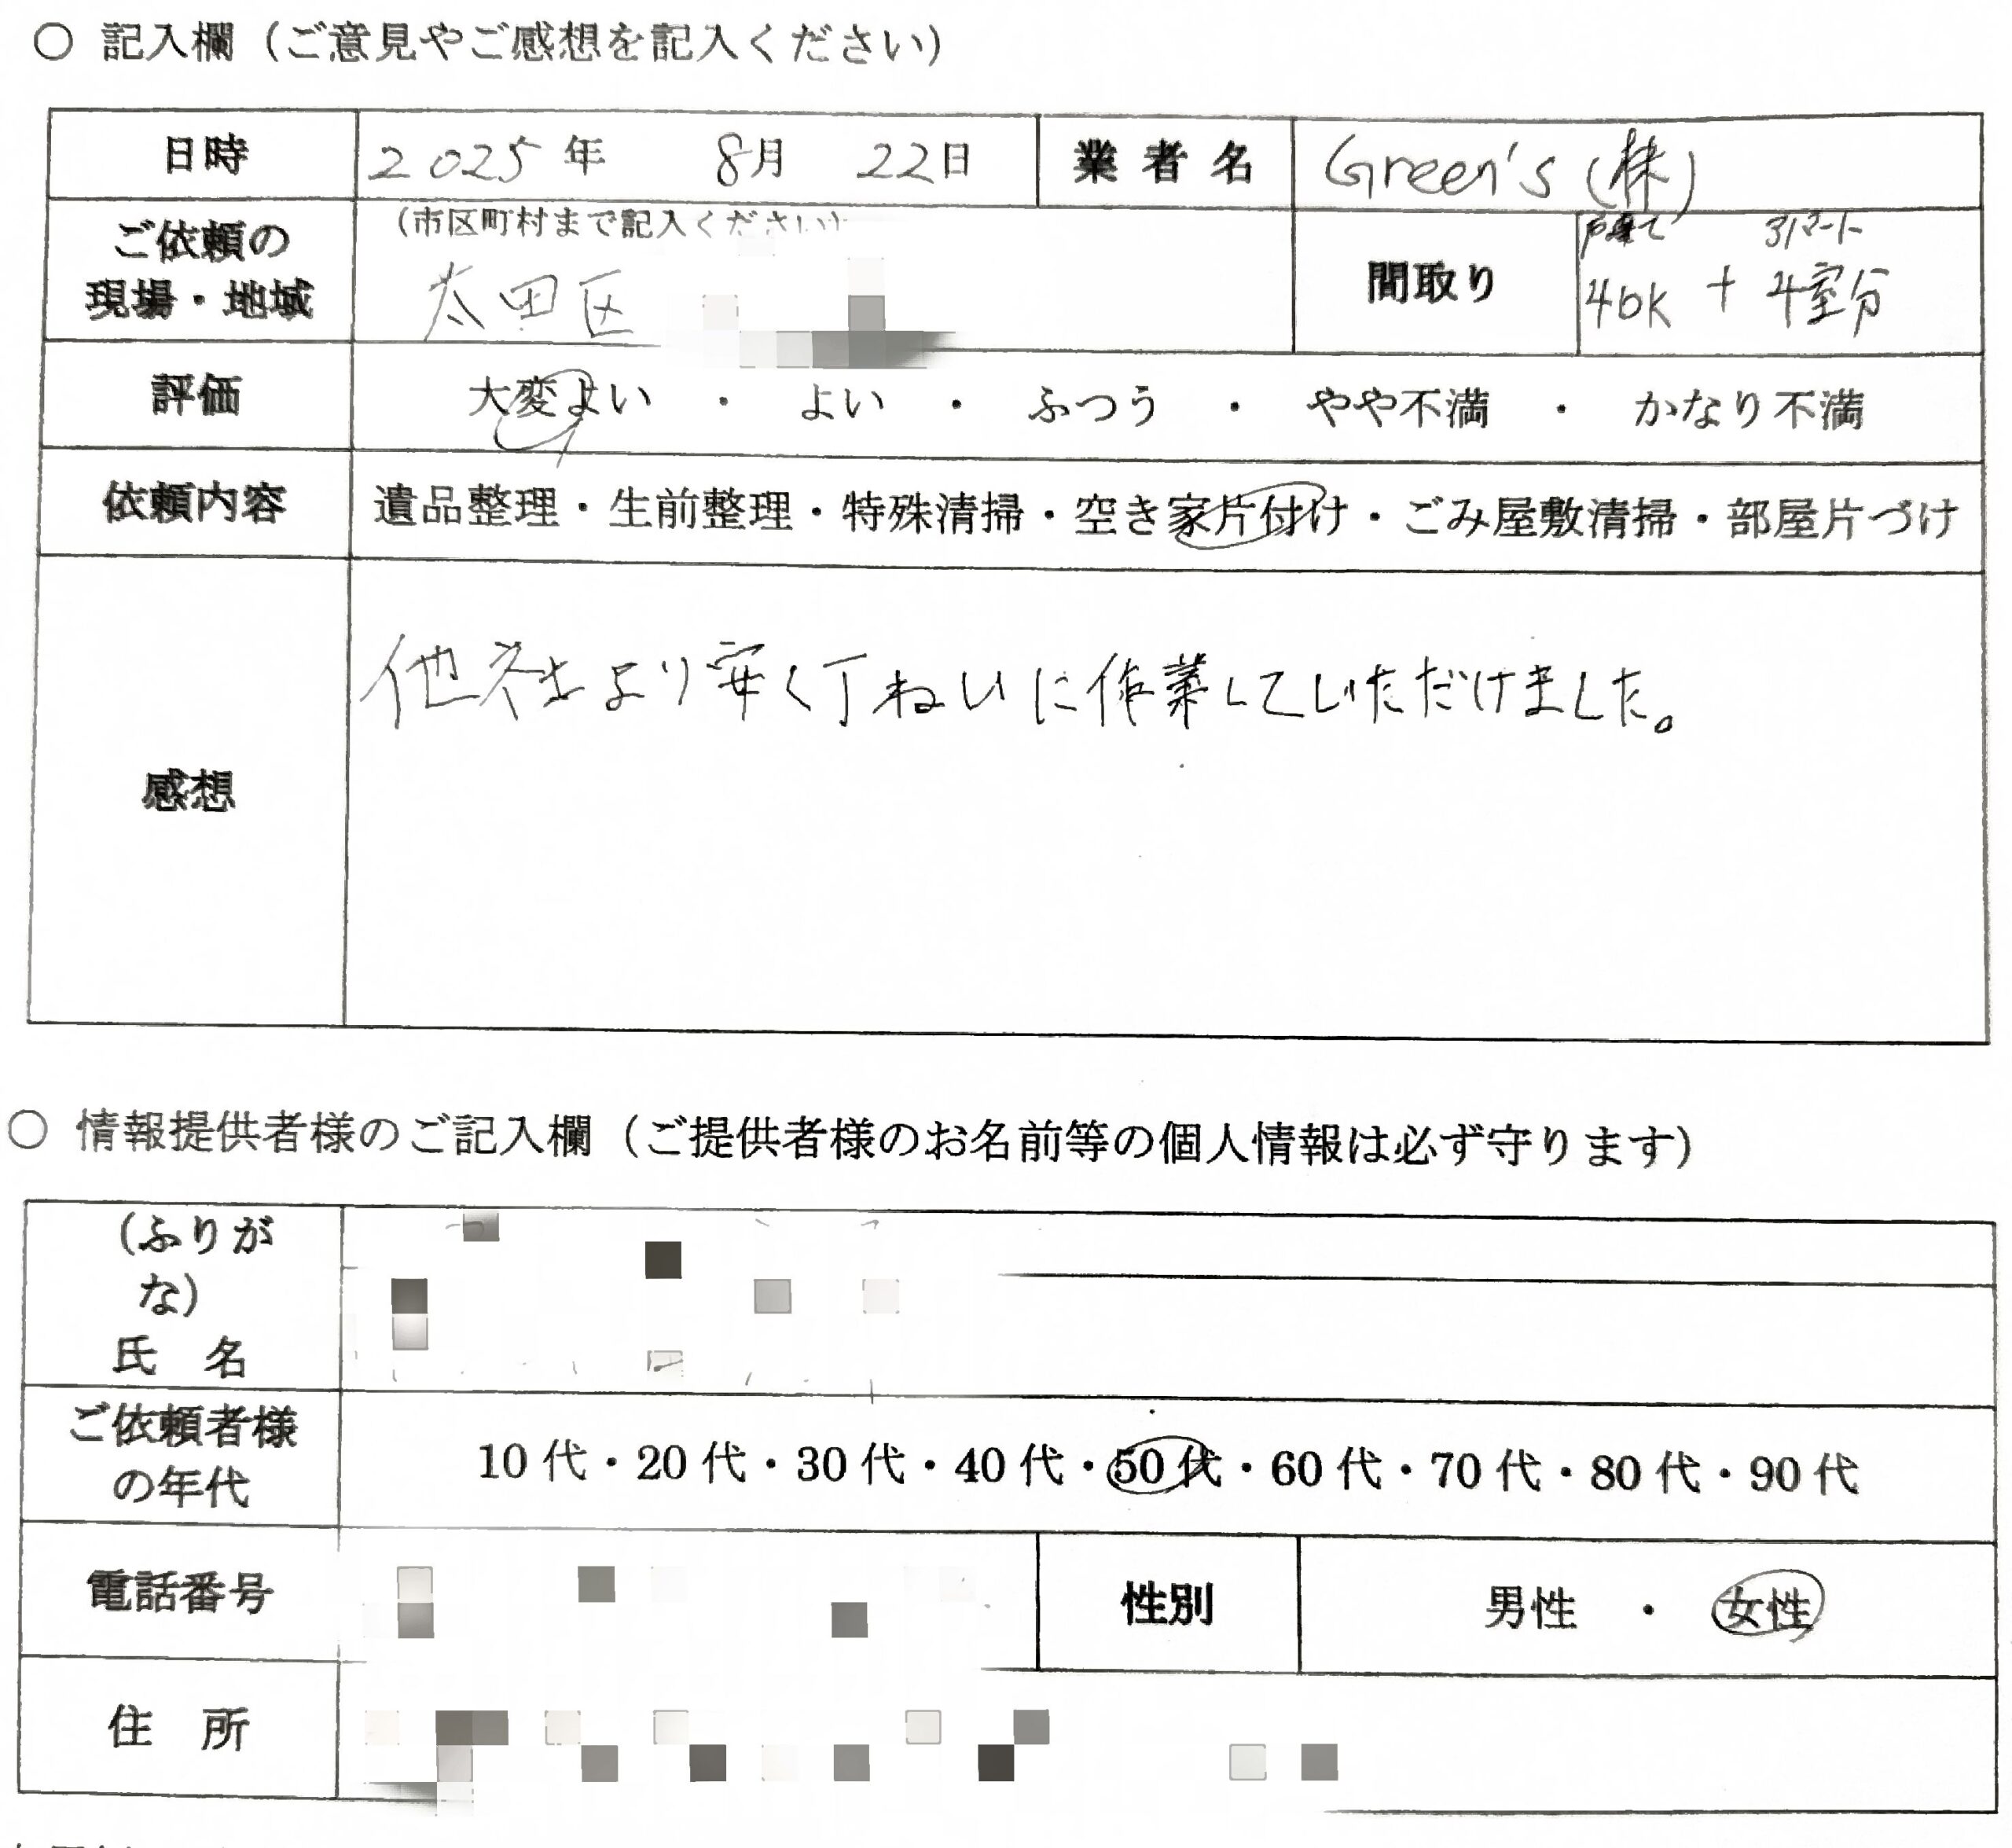 ○ 記入欄（ご意見やご感想を記入ください）
日時 2025年 8月 22日 業者名 Green's (株)
ご依頼の現場・地域 （市区町村まで記入ください）
太田区
間取り 戸建て アパート
4DK + 4室分
評価 大変よい ・ よい ・ ふつう ・ やや不満 ・ かなり不満
依頼内容 遺品整理・生前整理・特殊清掃・空き家片付け・ごみ屋敷清掃・部屋片づけ
感想 他社さまより安く丁ねいに作業していただけました。
○ 情報提供者様のご記入欄（ご提供者様のお名前等の個人情報は必ず守ります）
（ふりがな）
氏 名
ご依頼者様の年代 10代・20代・30代・40代・50代・60代・70代・80代・90代
電話番号 性別 男性 ・ 女性
住 所